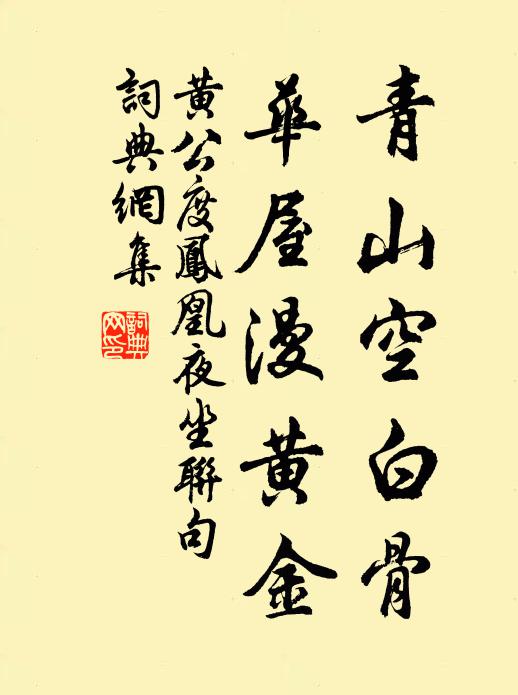 青山空白骨
華屋漫黃金
黃公度鳳凰夜坐聯句
詞典網集
詞典
网印